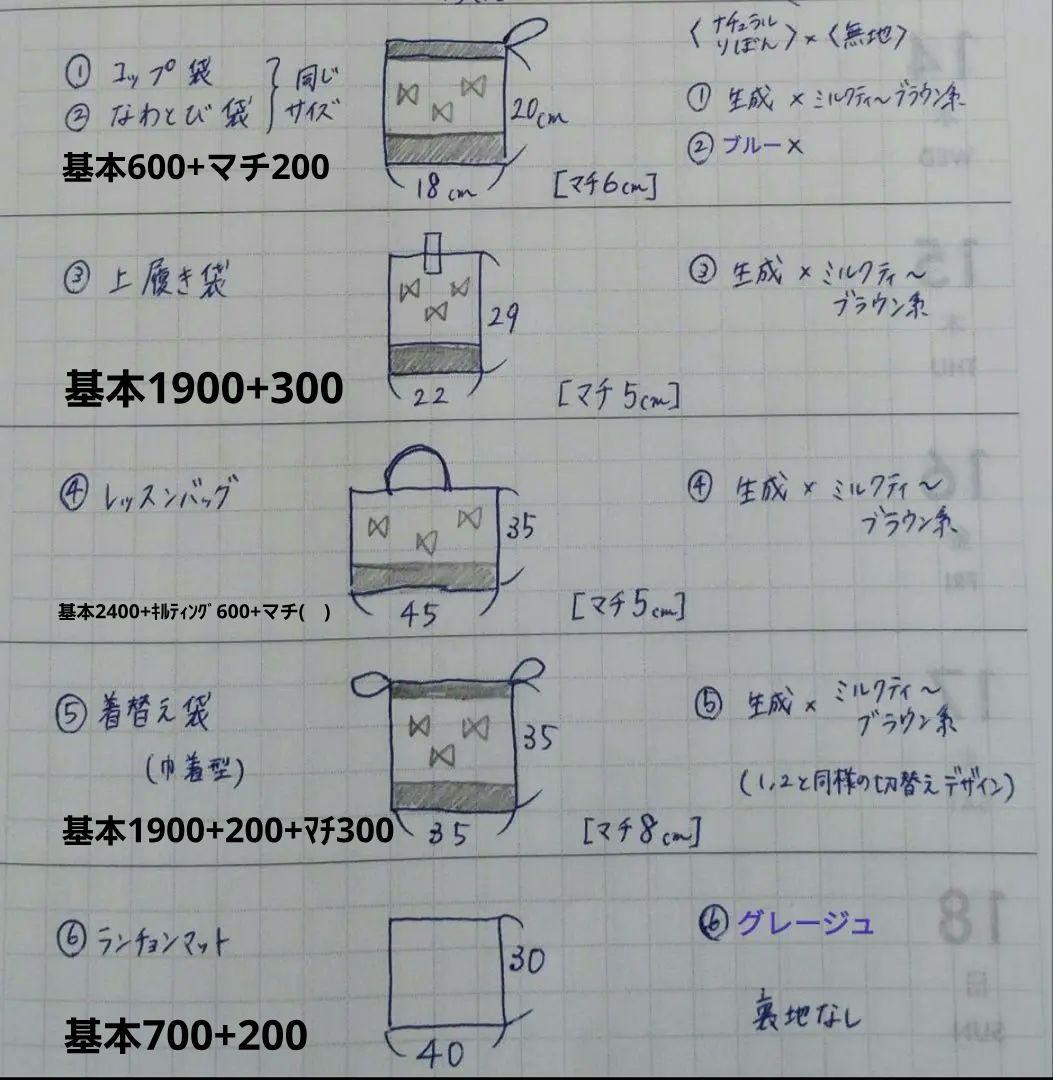 〈ナチュラル
りぼん〉×〈無地〉
① コップ袋
② なわとび袋
同じ
サイズ
20cm
18cm
[マチ6cm]
基本600+マチ200
① 生成 × ミルクティ〜ブラウン系
② ブルー×
③ 上履き袋
29
22
[マチ5cm]
基本1900+300
③ 生成 × ミルクティ〜
ブラウン系
④ レッスンバッグ
35
45
[マチ5cm]
基本2400+ｷﾙﾃｨﾝｸﾞ600+マチ(　)
④ 生成 × ミルクティ〜
ブラウン系
⑤ 着替え袋
(巾着型)
35
35
[マチ8cm]
基本1900+200+ﾏﾁ300
⑤ 生成 × ミルクティ〜
ブラウン系
(1,2と同様の切替えデザイン)
⑥ ランチョンマット
30
40
基本700+200
⑥ グレージュ
裏地なし
14
WED
15
木
THU
16
金
FRI
17
18
日
SUN